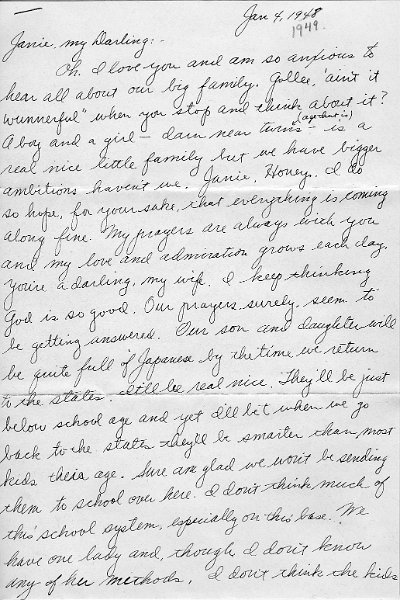 Jan 4, 1948
1949.
Janie, my Darling:-
Oh. I love you and am so anxious to
hear all about our big family. Gollee, 'aint it
wunnerful' when you stop and think about it?
A boy and a girl – darn near twins – is a
real nice little family but we have bigger
ambitions haven't we. Janie, Honey. I do
so hope, for your sake, that everything is coming
along fine. My prayers are always with you
and my love and admiration grows each day.
You're a darling, my wife. I keep thinking
God is so good. Our prayers, surely, seem to
be getting answered. Our son and daughter will
be quite full of Japanese by the time we return
to the states. It'll be real nice. They'll be just
below school age and yet I'll bit when we go
back to the states they'll be smarter than most
kids their age. Sure am glad we won't be sending
them to school over here. I don't think much of
this school system, especially on this base. We
have one lady and, though I don't know
any of her methods, I don't think the kids